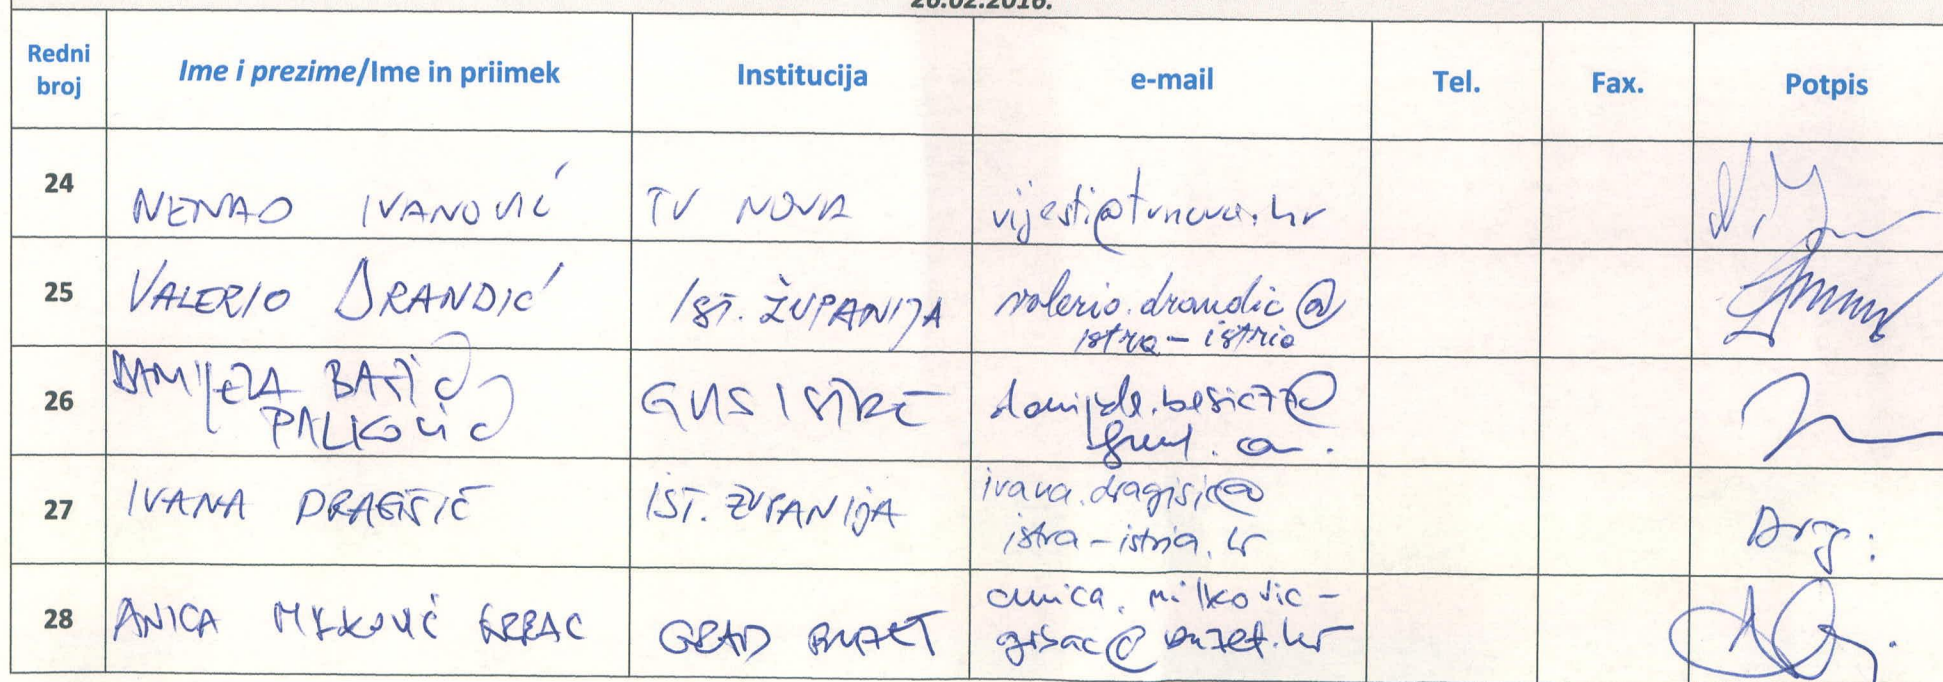 26.02.2016.
Redni broj Ime i prezime/Ime in priimek Institucija e-mail Tel. Fax. Potpis
24 NENAD IVANOVIĆ TV NOVA vijesti@tvnova.hr
25 VALERIO DRANDIĆ IST. ŽUPANIJA valerio.drandic@
istra-istria
26 DANIJELA BAŠIĆ
PALKOVIĆ
GLAS ISTRE danijela.basic77@
27 IVANA DRAGIŠIĆ IST. ŽUPANIJA ivana.dragisic@
istra-istria.hr
28 ANICA MILKOVIĆ GRBAC GRAD BUZET anica.milkovic-
grbac@buzet.hr